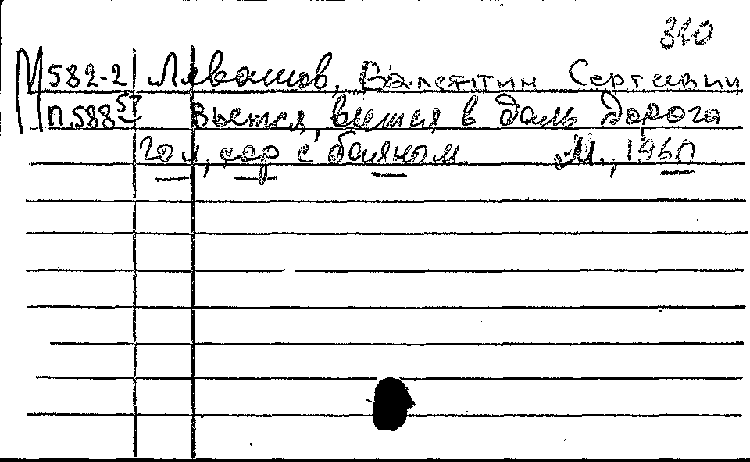 310
М 582-2 Левашов, Валентин Сергеевич
П.588 57 Вьется, вьется в даль дорога
Гол, хор с баяном М., 1960